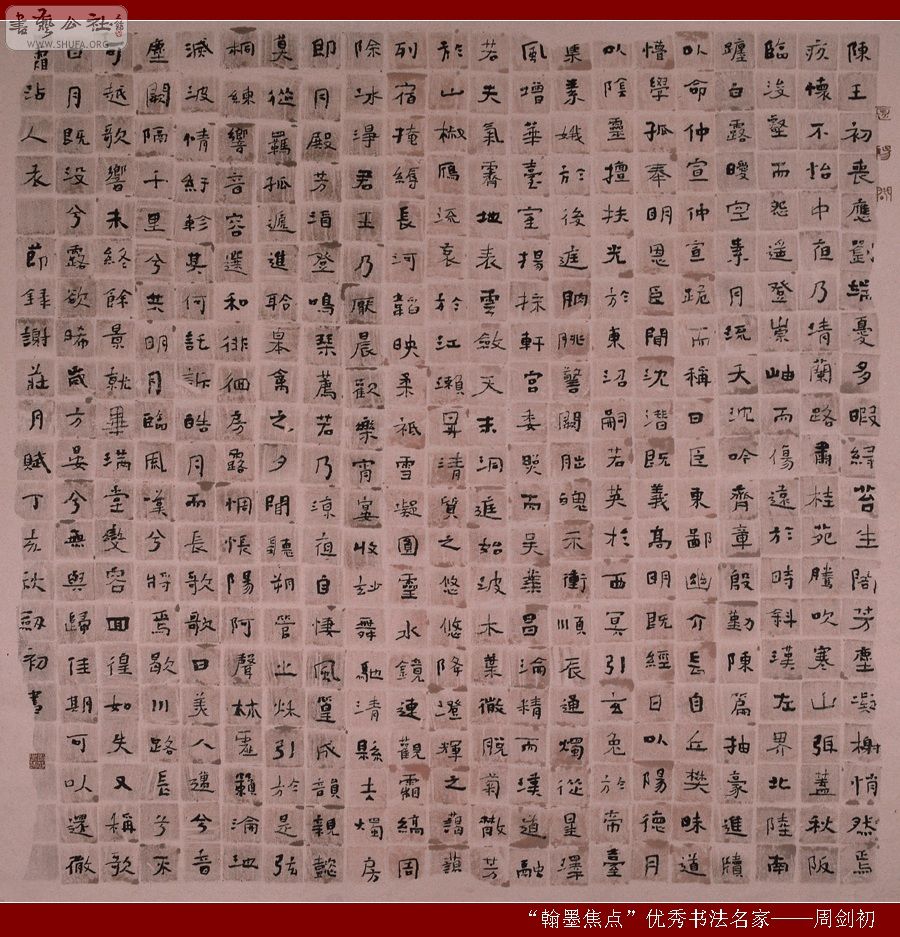 陳王初喪應劉端憂多暇綠苔生閣芳塵凝榭悄然焉
疚懷不怡中夜乃清蘭路肅桂苑騰吹寒山弭蓋秋阪
臨浚壑而怨遙登崇岫而傷遠於時斜漢左界北陸南
躔白露曖空素月流天沈吟齊章殷勤陳篇抽毫進牘
以命仲宣仲宣跪而稱曰臣東鄙幽介長自丘樊昧道
懵學孤奉明恩臣聞沈潛既義高明既經日以陽德月
以陰靈擅扶光於東沼嗣若英於西冥引玄兔於帝臺
集素娥於後庭朒朓警闕朏魄示衝順辰通燭從星澤
風增華臺室揚採軒宮委照而吳業昌淪精而漢道融
若夫氣霽地表雲斂天末洞庭始波木葉微脫菊散芳
於山椒雁流哀於江瀨昇清質之悠悠降澄輝之藹藹
列宿掩縟長河韜映柔祇雪凝圓靈水鏡連觀霜縞周
除冰淨君王乃厭晨歡樂宵宴收妙舞馳清縣去燭房
即月殿芳酒登鳴琴薦若乃涼夜自悽風篁成韻親懿
莫從羈孤遞進聆皋禽之夕聞聽朔管之秋引於是弦
桐練響音容選和徘徊房露惆悵陽阿聲林虛籟淪池
滅波情紆軫其何託訴皓月而長歌歌曰美人邁兮音
塵闕隔千里兮共明月臨風嘆兮將焉歇川路長兮不
可越歌響未終餘景就畢滿堂變容回徨如失又稱歌
曰月既沒兮露欲晞歲方晏兮無與歸佳期可以還微
霜沾人衣 節錄謝莊月賦丁亥秋劍初書
書藝公社
www.SHUFA.ORG
“翰墨焦点”优秀书法名家——周剑初